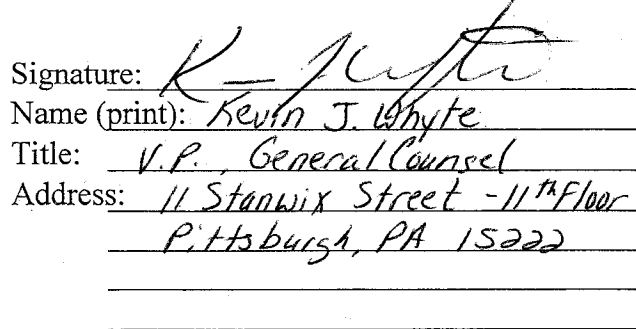 Signature:
Name (print): Kevin J. Whyte
Title: V.P., General Counsel
Address: 11 Stanwix Street - 11th Floor
Pittsburgh, PA 15222